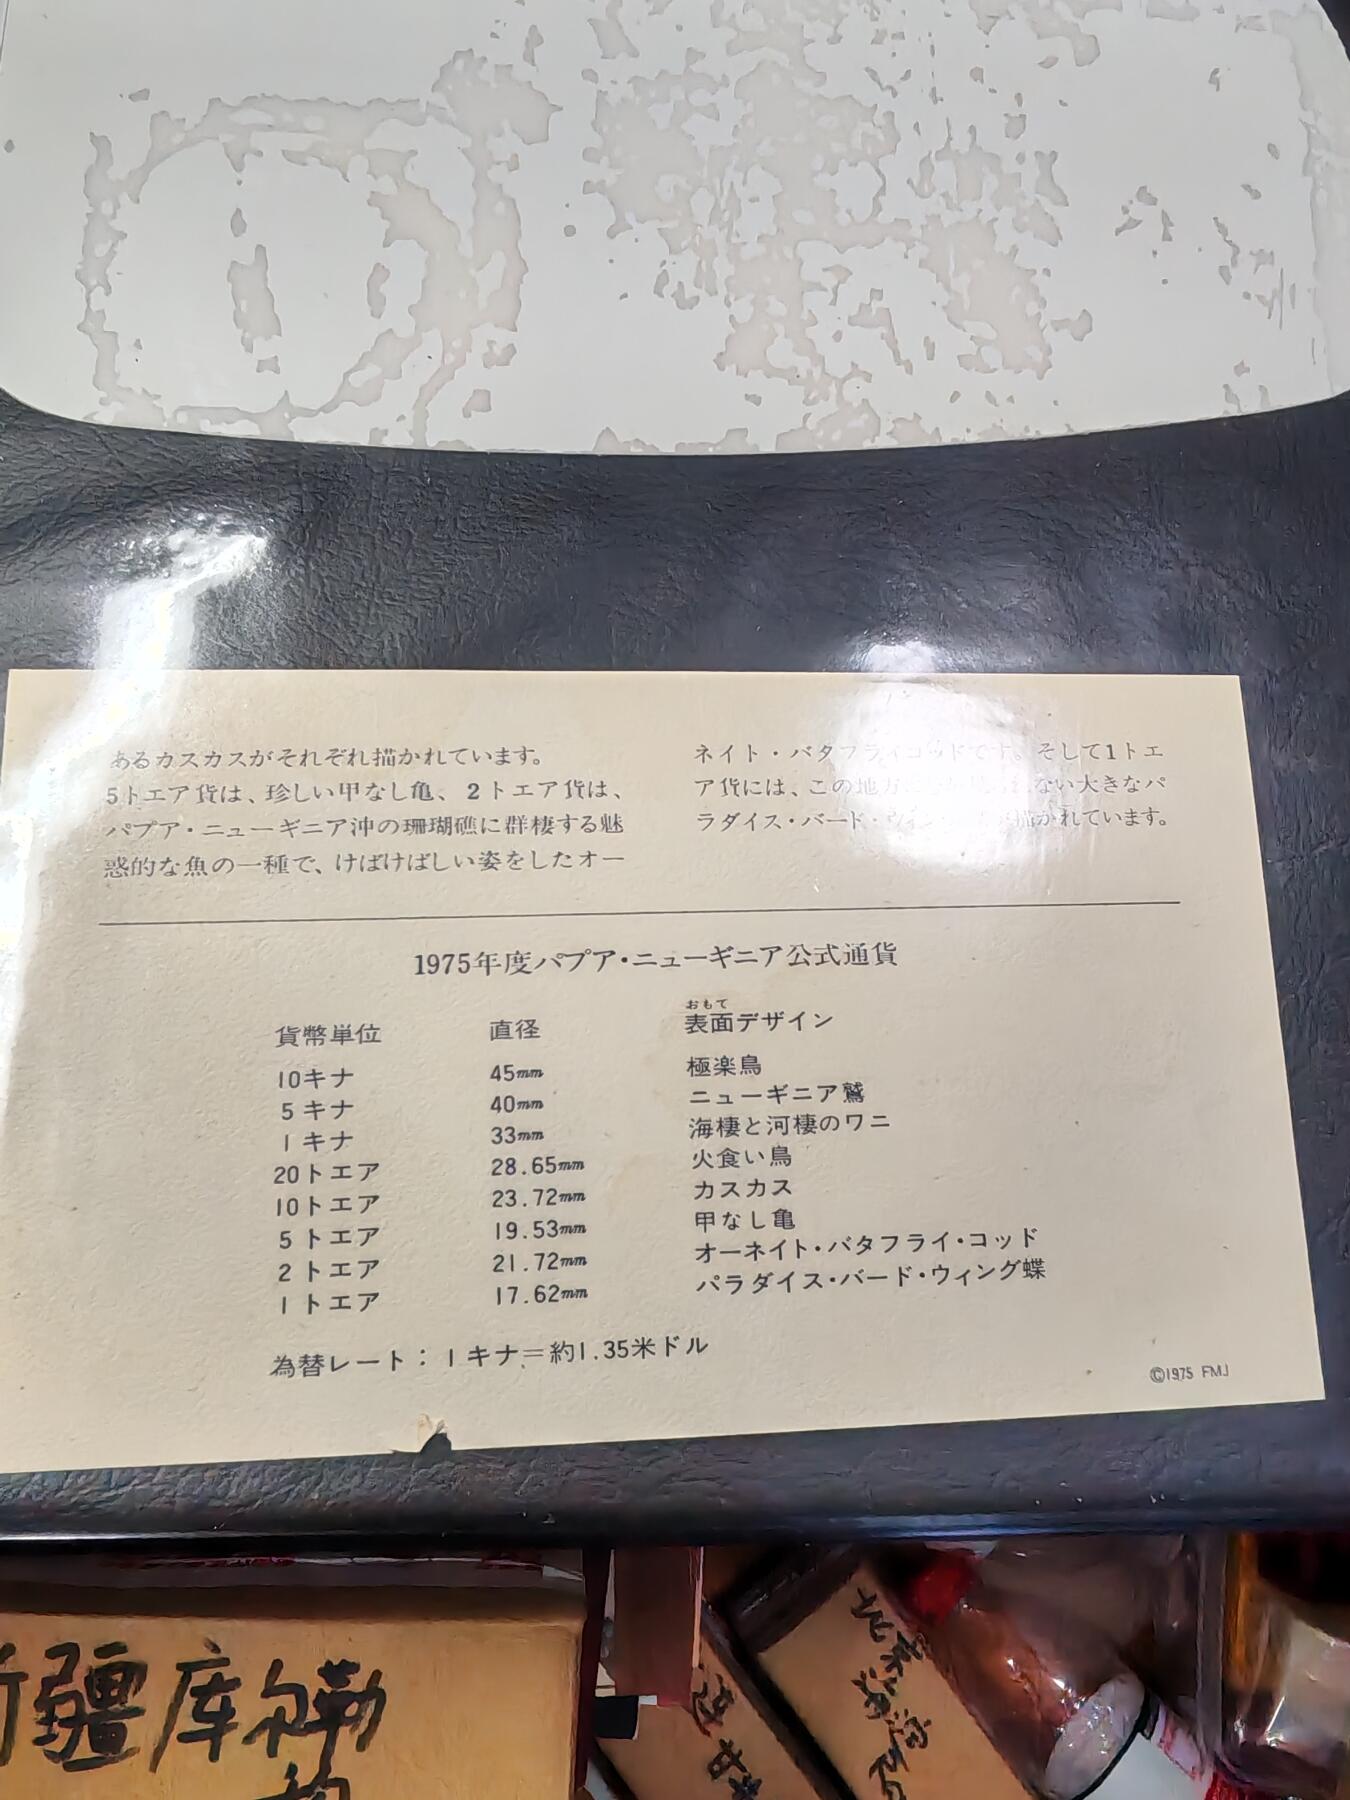 あるカスカスがそれぞれ描かれています。
5トエア貨は、珍しい甲なし亀、2トエア貨は、
パプア・ニューギニア沖の珊瑚礁に群棲する魅
惑的な魚の一種で、けばけばしい姿をしたオー
ネイト・バタフライコッドです。そして1トエ
ア貨には、この地方にない大きなパ
ラダイス・バード・ウィング描かれています。
1975年度パプア・ニューギニア公式通貨
貨幣単位 直径 表面デザイン
おもて
10キナ 45mm 極楽鳥
5キナ 40mm ニューギニア鷲
1キナ 33mm 海棲と河棲のワニ
20トエア 28.65mm 火食い鳥
10トエア 23.72mm カスカス
5トエア 19.53mm 甲なし亀
2トエア 21.72mm オーネイト・バタフライ・コッド
1トエア 17.62mm パラダイス・バード・ウィング蝶
為替レート：1キナ＝約1.35米ドル
©1975 FMJ
疆库尔勒